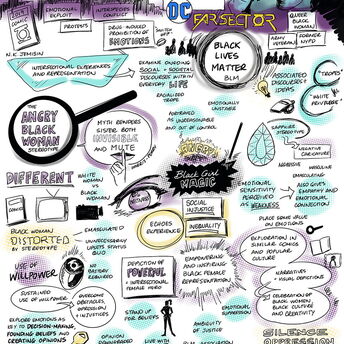 DC
FAR SECTOR
EMOTIONAL
EXPLOIT
INTERSPECIES
CONFLICT
PROTESTS
DRUG INDUCED
PROHIBITION OF
EMOTIONS
COMIC
N.K. JEMISIN
INTERSECTIONAL EXPERIENCES
AND REPRESENTATION
EXAMINE ONGOING
SOCIAL + SOCIETAL
DISCOURSES WITHIN
EVERYDAY LIFE
BLACK
LIVES
MATTER
BLM
QUEER
BLACK
WOMAN
ARMY
VETERAN
FORMER
NYPD
ASSOCIATED
DISCOURSES +
IDEAS
TROPES
"WHITE
PRIVILEGE"
RACIALIZED
TROPE
EMOTIONALLY
UNSTABLE
PORTRAYED AS
UNREASONABLE
AND OUT OF CONTROL
THE
ANGRY
BLACK
WOMAN
STEREOTYPE
MYTH RENDERS
SISTER BOTH
INVISIBLE
AND MUTE
SAPPHIRE
STEREOTYPE
NEGATIVE
CARICATURE
AGGRESSIVE
UNFEELING
EMASCULATING
DIFFERENT
WHITE
WOMAN
VS
BLACK
ANGRY
Black Girl
MAGIC
EMOTIONAL
SENSITIVITY
PERCEIVED
AS WEAKNESS
ALSO GIVES
EMPATHY AND
EMOTIONAL
CONNECTION
COMIC
SOCIAL
INJUSTICE
INEQUALITY
ECHOES
EXPERIENCE
PLACE SOME VALUE
ON EMOTIONS
BLACK WOMAN
DISTORTED
BY STEREOTYPE
EMASCULATED
UNNECESSARILY
UPSETS
STATUS QUO
EXPLORATION IN
SIMILAR COMICS
AND POPULAR
CULTURE
USE OF
WILLPOWER
NO
BATTERY
REQUIRED
DEPICTION OF
POWERFUL
+ INTERSECTIONAL
FEMALE HERO
EMPOWERING
AND INTERSECTIONAL
BLACK FEMALE
REPRESENTATION
NARRATIVES
+ VISUAL DEPICTIONS
SUSTAINED
USE OF WILLPOWER
OVERCOMES
OBSTACLES,
OPPRESSIONS,
+ NARRATIVES
CELEBRATION OF
BLACK WOMEN,
BLACK CULTURE
AND CREATIVITY
EMOTIONAL
SUPPRESSION
STAND UP FOR
BELIEFS
EXPLORE EMOTIONS AS
KEY TO DECISION-MAKING,
FOUNDING BELIEFS AND
CREATING OPINIONS
AMBIGUITY OF
JUSTICE
SILENCE
OPPRESSION
OPINION
LIVE WITH